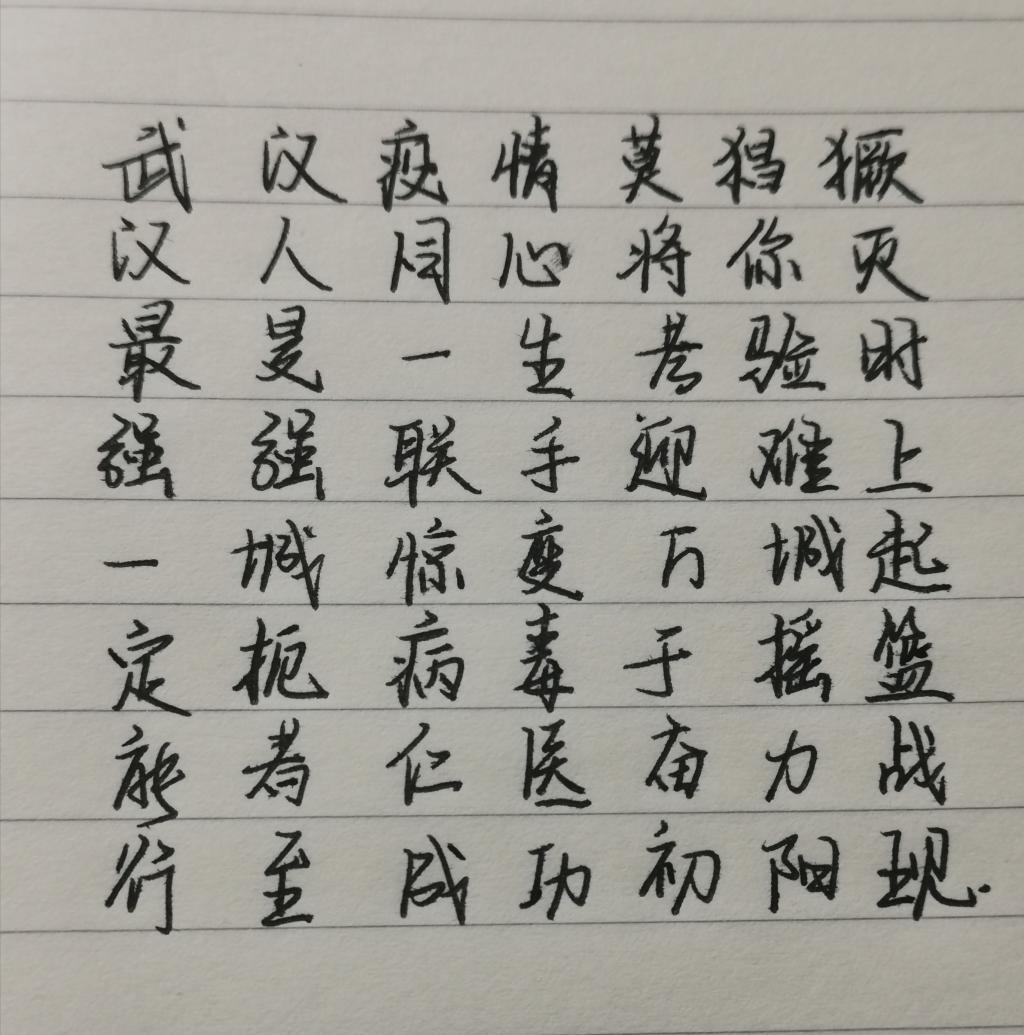 武汉疫情莫猖獗
汉人同心将你灭
最是一生考验时
强强联手迎难上
一城惊变万城起
定扼病毒于摇篮
能者仁医奋力战
行至成功初阳现.